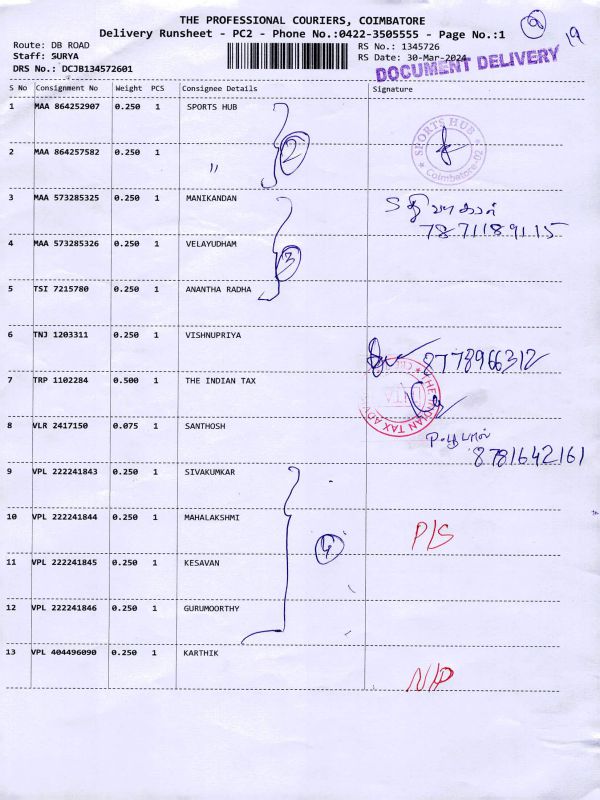 THE PROFESSIONAL COURIERS, COIMBATORE
Delivery Runsheet - PC2 - Phone No.:0422-3505555 - Page No.:1
Route: DB ROAD
RS No.: 1345726
Staff: SURYA
RS Date: 30-Mar-2024
DRS No.: DCJB134572601
DOCUMENT DELIVERY
S No Consignment No Weight PCS Consignee Details Signature
1 MAA 864252907 0.250 1 SPORTS HUB
SPORTS HUB
Coimbatore-02
2 MAA 864257582 0.250 1 〃
2
3 MAA 573285325 0.250 1 MANIKANDAN
7871189115
4 MAA 573285326 0.250 1 VELAYUDHAM
3
5 TSI 7215780 0.250 1 ANANTHA RADHA
6 TNJ 1203311 0.250 1 VISHNUPRIYA
8778966312
7 TRP 1102284 0.500 1 THE INDIAN TAX
THE INDIAN TAX
8 VLR 2417150 0.075 1 SANTHOSH
8781642161
9 VPL 222241843 0.250 1 SIVAKUMKAR
10 VPL 222241844 0.250 1 MAHALAKSHMI
P/S
4
11 VPL 222241845 0.250 1 KESAVAN
12 VPL 222241846 0.250 1 GURUMOORTHY
13 VPL 404496090 0.250 1 KARTHIK
N/P